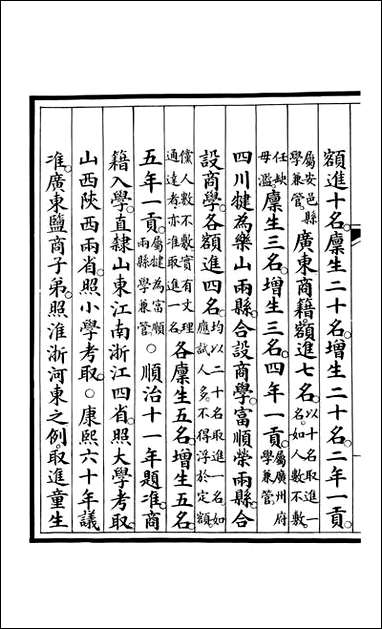 額進十名。廩生二十名。增生二十名。二年一貢。
屬安邑縣學兼管。廣東商籍。額進七名。以十名取進一名。如人數不敷。
任缺毋濫。廩生三名。增生三名。四年一貢。屬廣州府學兼管。
四川犍為樂山兩縣。合設商學。富順榮兩縣。合
設商學。各額進四名。均以二十名取進一名。如應試人多。不得浮於定額。
儻人數不敷。實有文理通達者。亦准取進一名。各廩生五名。增生五名。
五年一貢。屬犍為富順兩縣學兼管。○順治十一年題准。商
籍入學。直隸山東江南浙江四省。照大學考取。
山西陝西兩省。照小學考取。○康熙六十年議
准。廣東鹽商子弟。照淮浙河東之例。取進童生